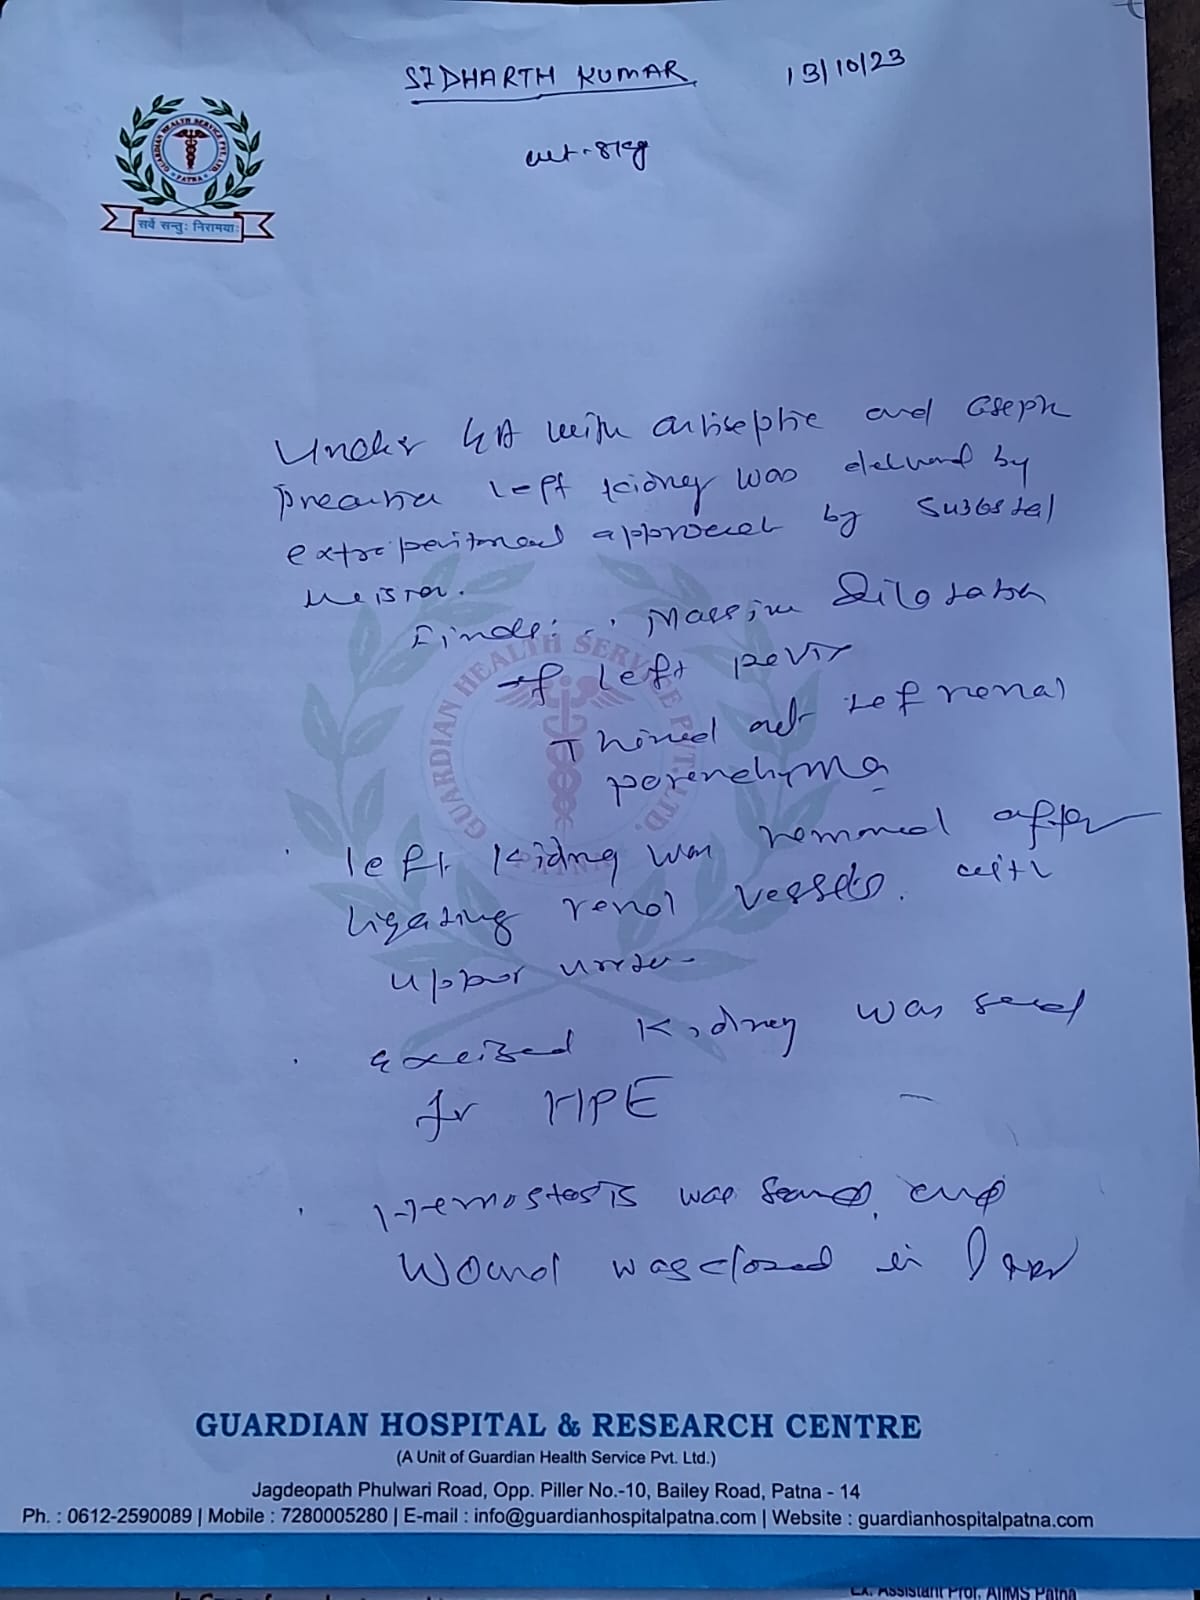 SIDHARTH KUMAR 13/10/23
wt - 8 kg
GUARDIAN HEALTH SERVICE PVT. LTD.
PATNA
सर्वे सन्तु: निरामयाः
Under GA with antiseptic and aseptic
left kidney was delivered by
extraperitoneal approach by subcostal
incision.
Finds: Massive dilatation
of left pelvis
Thined out left renal
parenchyma
GUARDIAN HEALTH SERVICE PVT. LTD.
left kidney was removed after
ligating renal vessels. with
upper ureter
excised kidney was send
for HPE
Hemostasis was and
Wound was closed in layer
GUARDIAN HOSPITAL & RESEARCH CENTRE
(A Unit of Guardian Health Service Pvt. Ltd.)
Jagdeopath Phulwari Road, Opp. Piller No.-10, Bailey Road, Patna - 14
Ph. : 0612-2590089 | Mobile : 7280005280 | E-mail : info@guardianhospitalpatna.com | Website : guardianhospitalpatna.com
Ex. Assistant Prof. AIIMS Patna